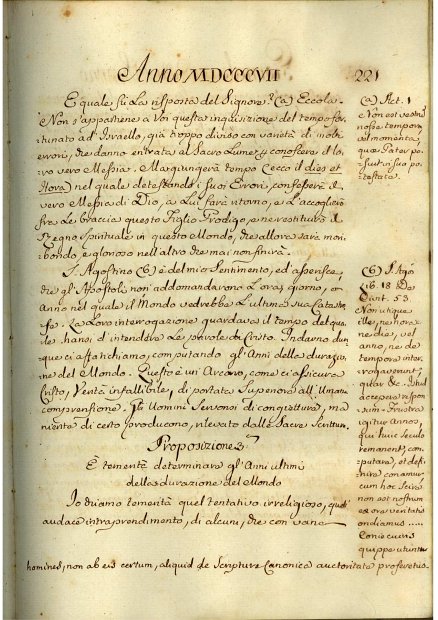 Anno MDCCCVII
221
E quale fù la risposta del Signore? (a) Eccola.
Non s'appartiene a Voi questa inquisizione del tempo for-
tunato ad Israello, già troppo diviso con varietà di molti
errori, che danno entrata al Sacro Lume, e conoscere il lo-
ro vero Messia. Ma giungerà tempo (ecco il dies et
Hora) nel quale detestando i suoi Errori, confesserà il
vero Messia di Dio, a Lui farà ritorno, e L'accoglierà
fra le braccia questo Figlio Prodigo, e ne restituirà il
Regno Spirituale in questo Mondo, che allora sarà mori-
bondo, e glorioso nell'altro che mai non finirà.
S. Agostino (b) è del mio Sentimento, ed asserisce,
che gl'Apostoli non addomandarono l'ora, giorno, o
Anno nel quale il Mondo vedrebbe l'ultima sua Catastro-
fe. La Loro interrogazione guardava il tempo del qua-
le hansi d'intendere le parole di Cristo. Indarno dun-
que ci affatichiamo, computando gl'Anni della durazio-
ne del Mondo. Questo è un Arcano, come ci assicura
Cristo, Verità infallibile, di portata Superiore all'Umana
comprensione. Gl'Uomini Servonsi di congietture, ma
niente di certo producono, rilevato dalle Sacre Scritture.
Proposizione 3ª
È temerità determinare gl'Anni ultimi
della durazione del Mondo
Io chiamo temerità quel tentativo irreligioso, quel
audace intraprendimento, di alcuni, che con vana
(a) Act. 1
Non est vestrũ
nosse tempora
vel momenta
quæ Pater po-
suit in sua po-
testate.
(b) S. Ago
lib. 18 De
Civit. 53
Non utique
illi, ne hora
ne die, vel
anno, ne de
tempore inter-
rogaverunt,
quando &c. Istud
acceperis respon
sum. Frustra
igitur Annos,
qui huic Seculo
remanent, com-
putare, et defi-
nire conamur
cum hoc Scire
non est nostrum
ex ore veritatis
audiamus.....
Coniecturis
quippe utuntur
homines, non ab eis certum, aliquid de Scripturæ Canonicæ auctoritate profertur.